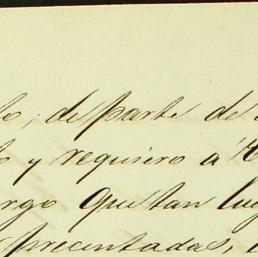 lo, de parte de
o y requiero a
rgo que tan lug
presentadas,